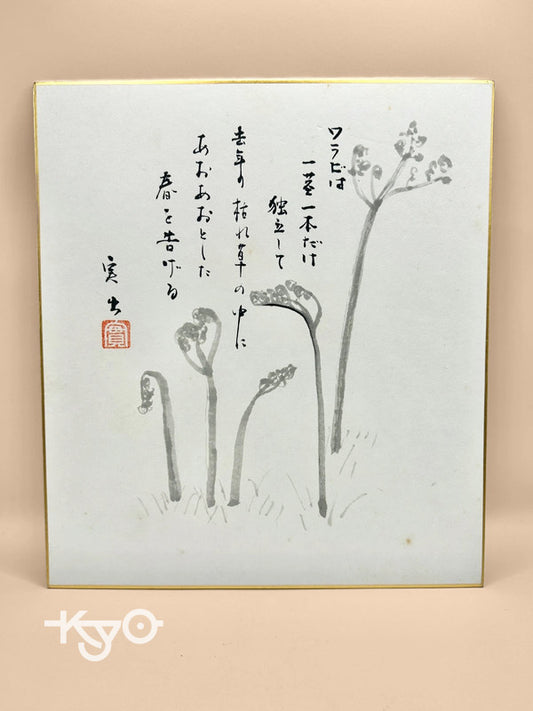 ワラビは
一茎一本だけ
独立して
去年の枯れ草の中に
あおあおとした
春を告げる
実出
實
KYO